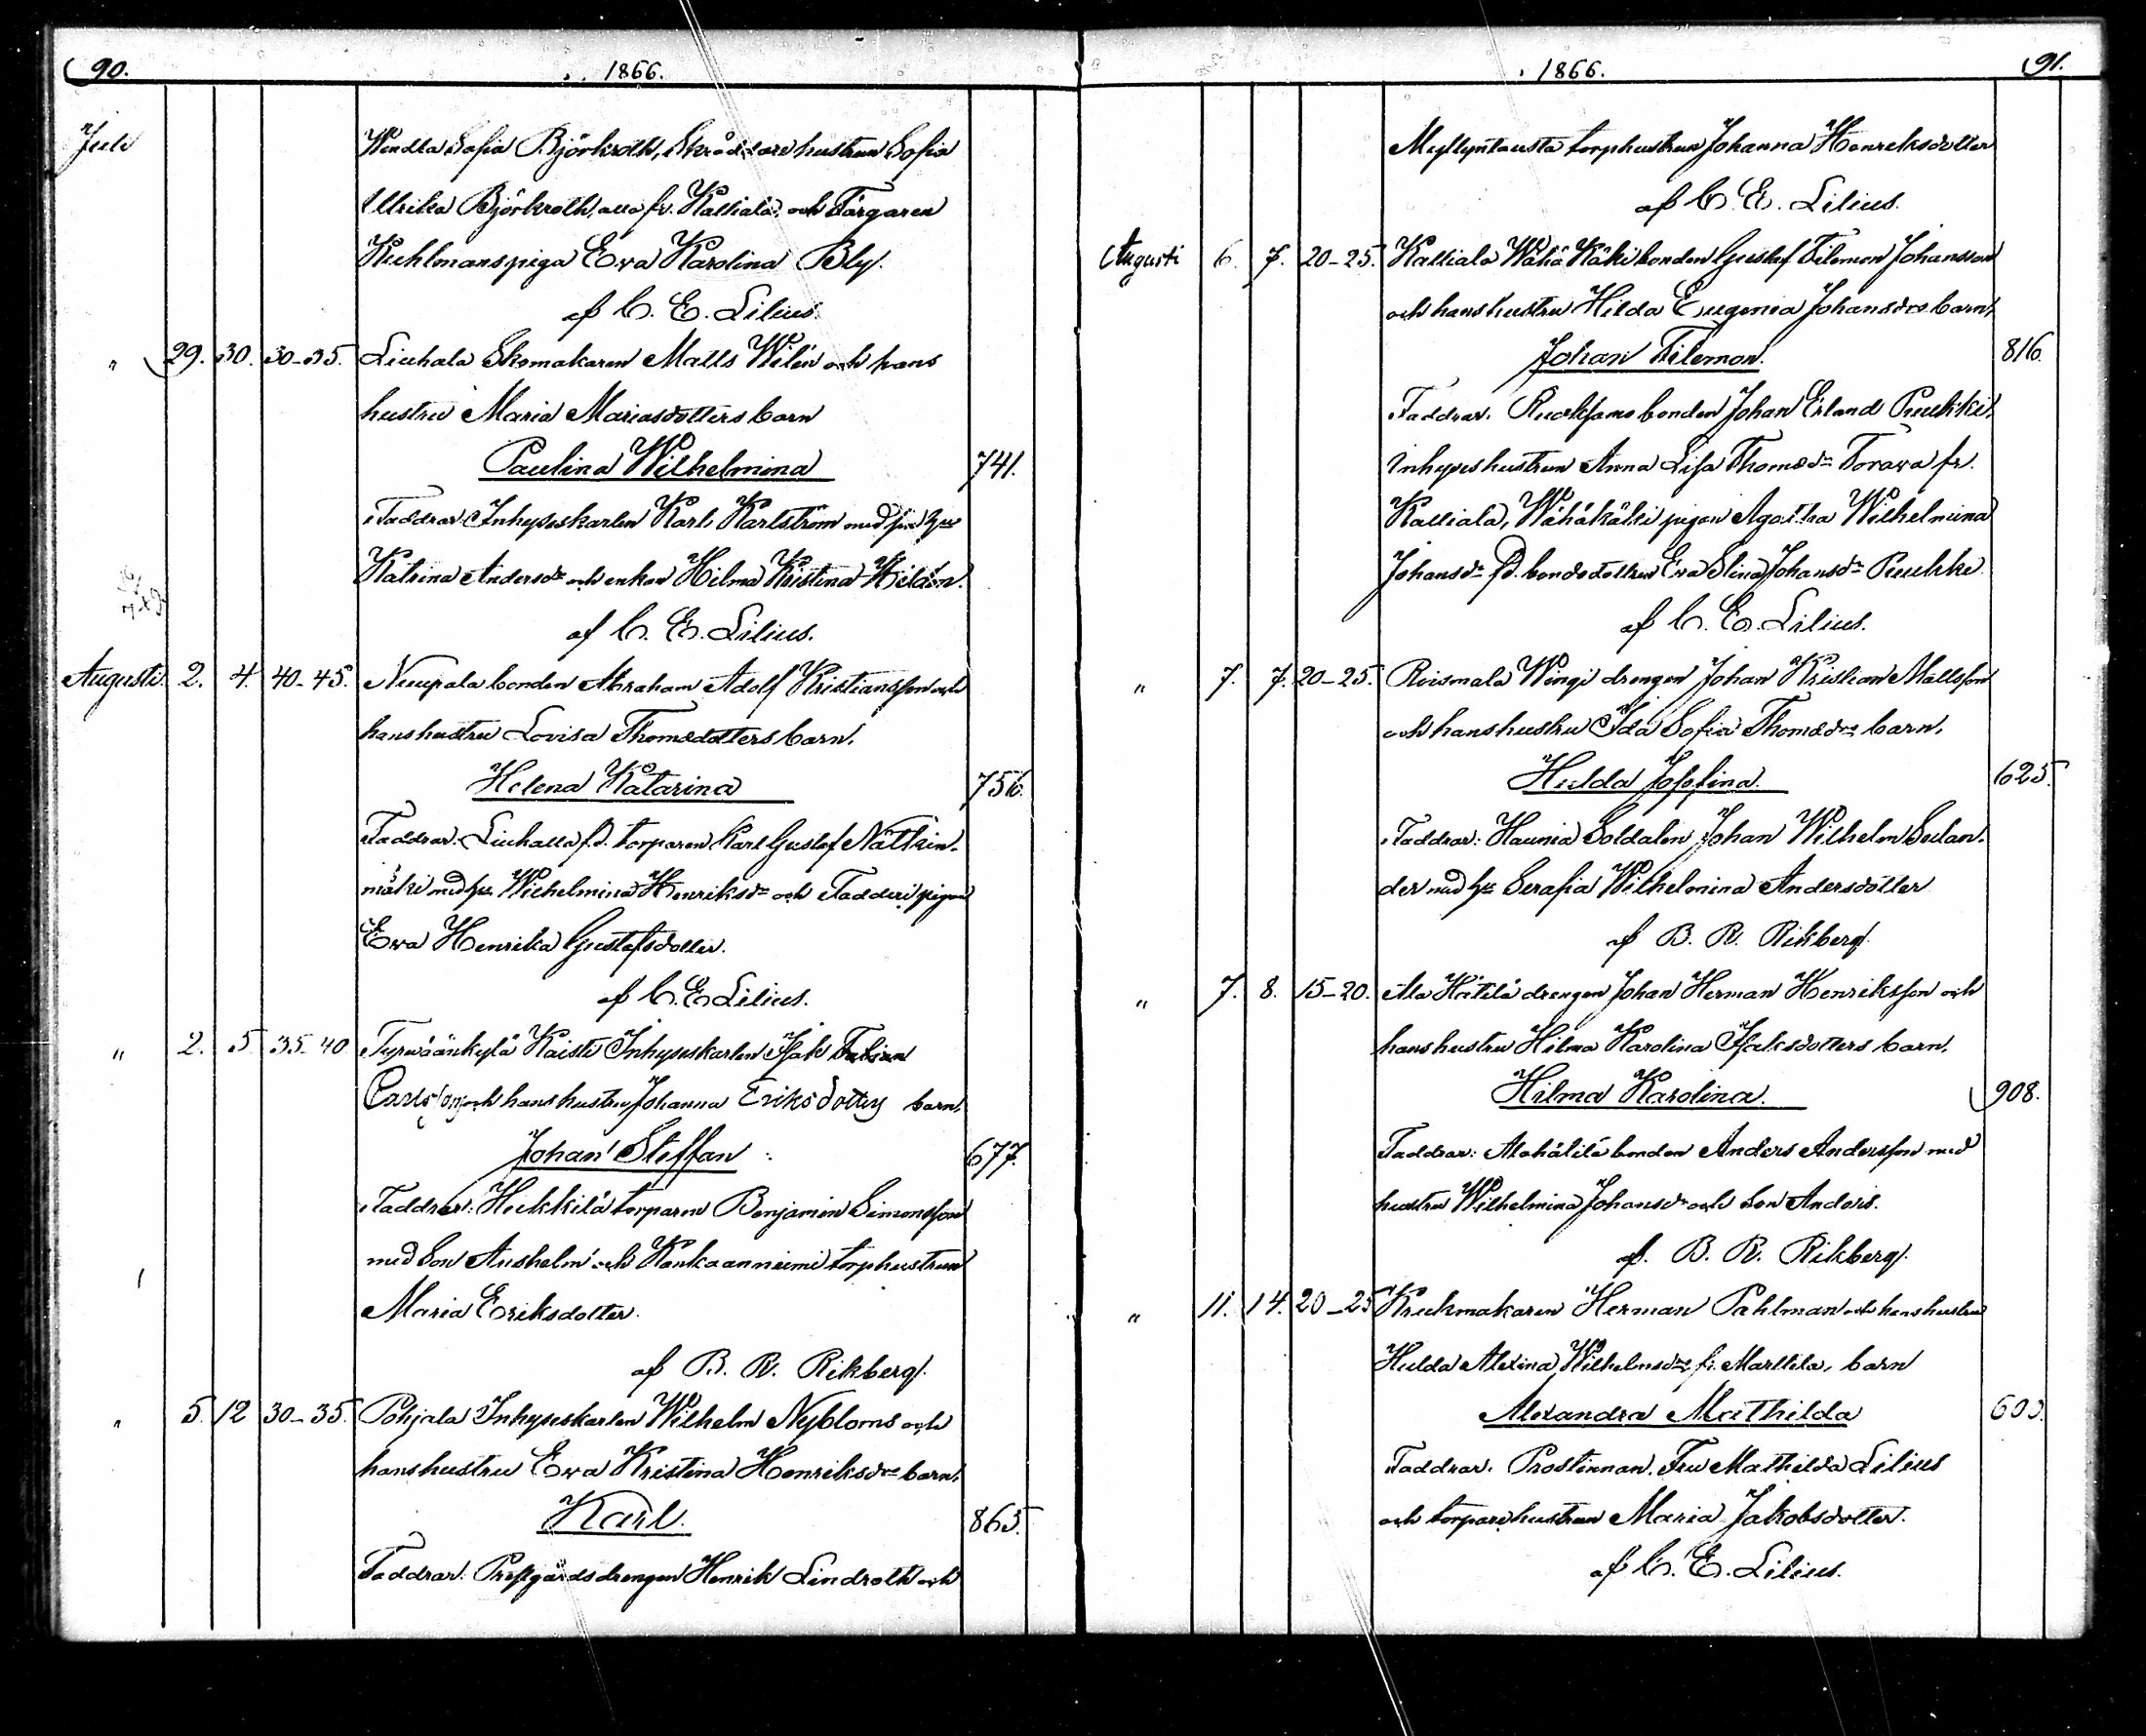 90.
1866.
Juli
Wendla Sofia Björkroth, Skräddarehustrun Sofia
Ulrika Björkroth, alla fr. Kalliala, och Färgaren
Kuhlmans piga Ewa Karolina Bly.
af C. E. Lilius.
" 29. 30. 30-35. Liuhala Skomakaren Matts Wilén och hans
hustru Maria Mariasdotters barn
Paulina Wilhelmina 741.
Faddrar: Inhyseskarlen Karl Karlström med
Katrina Andersdr och enkan Hilma Kristina
af C. E. Lilius.
Augusti. 2. 4. 40-45. Nuupala bonden Abraham Adolf Kristiansson och
hans hustru Lovisa Thomasdotters barn.
Helena Katarina 756.
Faddrar. Liuhalla f.d. torparen Karl Gustaf Nättkin-
mäki med hu Wilhelmina Henriksdr och Fadderi pigan
Ewa Henrika Gustafsdotter.
af C. E. Lilius.
" 2. 5. 35-40 Tyrwäänkylä Kaisti Inhyseskarlen Isak
Carlsson och hans hustru Johanna Eriksdotters barn.
Johan Steffan 677.
Faddrar: Heikkilä torparen Benjamin Simonsson
med Son Anshelm och Kankaanniemi torphustrun
Maria Eriksdotter.
af B. R. Rikberg.
" 5. 12 30-35. Pohjala Inhyseskarlen Wilhelm Nybloms och
hans hustru Ewa Kristina Henriksdrs barn.
Karl. 865.
Faddrar: Prestgårdsdrengen Henrik Lindroth och
1866.
91.
Myllyntausta torphustrun Johanna Henriksdotter
af C. E. Lilius.
Augusti 6. 7. 20-25. Kalliala Wähä Käki bonden Gustaf Filemon Johansson
och hans hustru Hilda Eugenia Johansdrs barn,
Johan Filemon. 816.
Faddrar. Ruoksamo bonden Johan Erland Puukki,
Inhyseshustrun Anna Lisa Thomasdr Torawa fr.
Kalliala, Wähäkäki pigan Agatha Wilhelmina
Johansdr f.d. bondedottren Ewa Stina Johansdr Puukki
af C. E. Lilius.
" 7. 7. 20-25. Roismala Wingi drengen Johan Kristian Mattsson
och hans hustru Ida Sofia Thomasdrs barn,
Hulda Josefina. 625.
Faddrar: Haunia Soldaten Johan Wilhelm Sulan-
der med hu Serafia Wilhelmina Andersdotter
af B. R. Rikberg.
" 7. 8. 15-20. Ala Hätilä drengen Johan Herman Henriksson och
hans hustru Hilma Karolina Isaksdotters barn,
Hilma Karolina. 908.
Faddrar: Alahätilä bonden Anders Andersson med
hustru Wilhelmina Johansdr och Son Anders.
af. B. R. Rikberg.
" 11. 14. 20-25 Krukmakaren Herman Pahlman och hans hustru
Hulda Alexina Wilhelmsdrs fr. Marttila, barn
Alexandra Mathilda 600.
Faddrar. Prostinnan, Fru Mathilda Lilius
och torparehustrun Maria Jakobsdotter.
af C. E. Lilius.